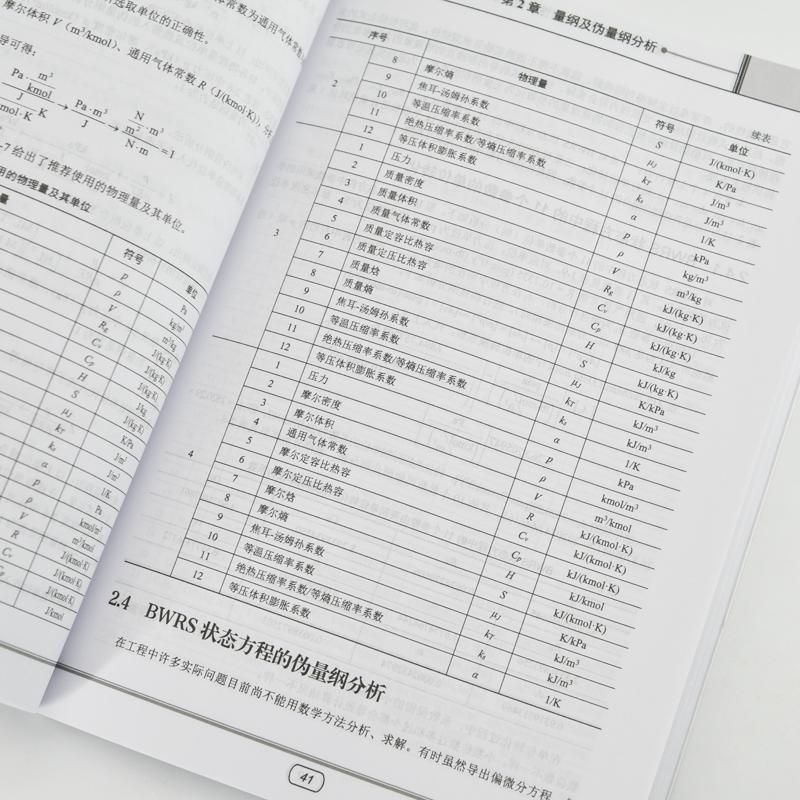 选取单位的正确性。
常数为通用气体常数
摩尔体积 V（m³/kmol）、通用气体常数 R（J/(kmol·K)）
导可得：
Pa· m³/kmol / J/(kmol·K) K → Pa·m³/J → N/m² ·m³ / N·m =1
-7 给出了推荐使用的物理量及其单位。
用的物理量及其单位
量 符号 单位
p Pa
ρ kg/m³
V m³/kg
Rg J/(kg·K)
Cv J/(kg·K)
Cp J/(kg·K)
H J/kg
S J/(kg·K)
μJ K/Pa
kT J/m³
ks J/m³
α 1/K
p Pa
ρ kmol/m³
V m³/kmol
R J/(kmol·K)
Cv J/(kmol·K)
Cp J/(kmol·K)
H J/kmol
第 2 章 量纲及伪量纲分析
续表
序号 物理量 符号 单位
2 8 摩尔熵 S J/(kmol·K)
9 焦耳-汤姆孙系数 μJ K/Pa
10 等温压缩率系数 kT J/m³
11 绝热压缩率系数/等熵压缩率系数 ks J/m³
12 等压体积膨胀系数 α 1/K
3 1 压力 p kPa
2 质量密度 ρ kg/m³
3 质量体积 V m³/kg
4 质量气体常数 Rg kJ/(kg·K)
5 质量定容比热容 Cv kJ/(kg·K)
6 质量定压比热容 Cp kJ/(kg·K)
7 质量焓 H kJ/kg
8 质量熵 S kJ/(kg·K)
9 焦耳-汤姆孙系数 μJ K/kPa
10 等温压缩率系数 kT kJ/m³
11 绝热压缩率系数/等熵压缩率系数 ks kJ/m³
12 等压体积膨胀系数 α 1/K
4 1 压力 p kPa
2 摩尔密度 ρ kmol/m³
3 摩尔体积 V m³/kmol
4 通用气体常数 R kJ/(kmol·K)
5 摩尔定容比热容 Cv kJ/(kmol·K)
6 摩尔定压比热容 Cp kJ/(kmol·K)
7 摩尔焓 H kJ/kmol
8 摩尔熵 S kJ/(kmol·K)
9 焦耳-汤姆孙系数 μJ K/kPa
10 等温压缩率系数 kT kJ/m³
11 绝热压缩率系数/等熵压缩率系数 ks kJ/m³
12 等压体积膨胀系数 α 1/K
2.4 BWRS 状态方程的伪量纲分析
在工程中许多实际问题目前尚不能用数学方法分析、求解。有时虽然导出偏微分方程，
41